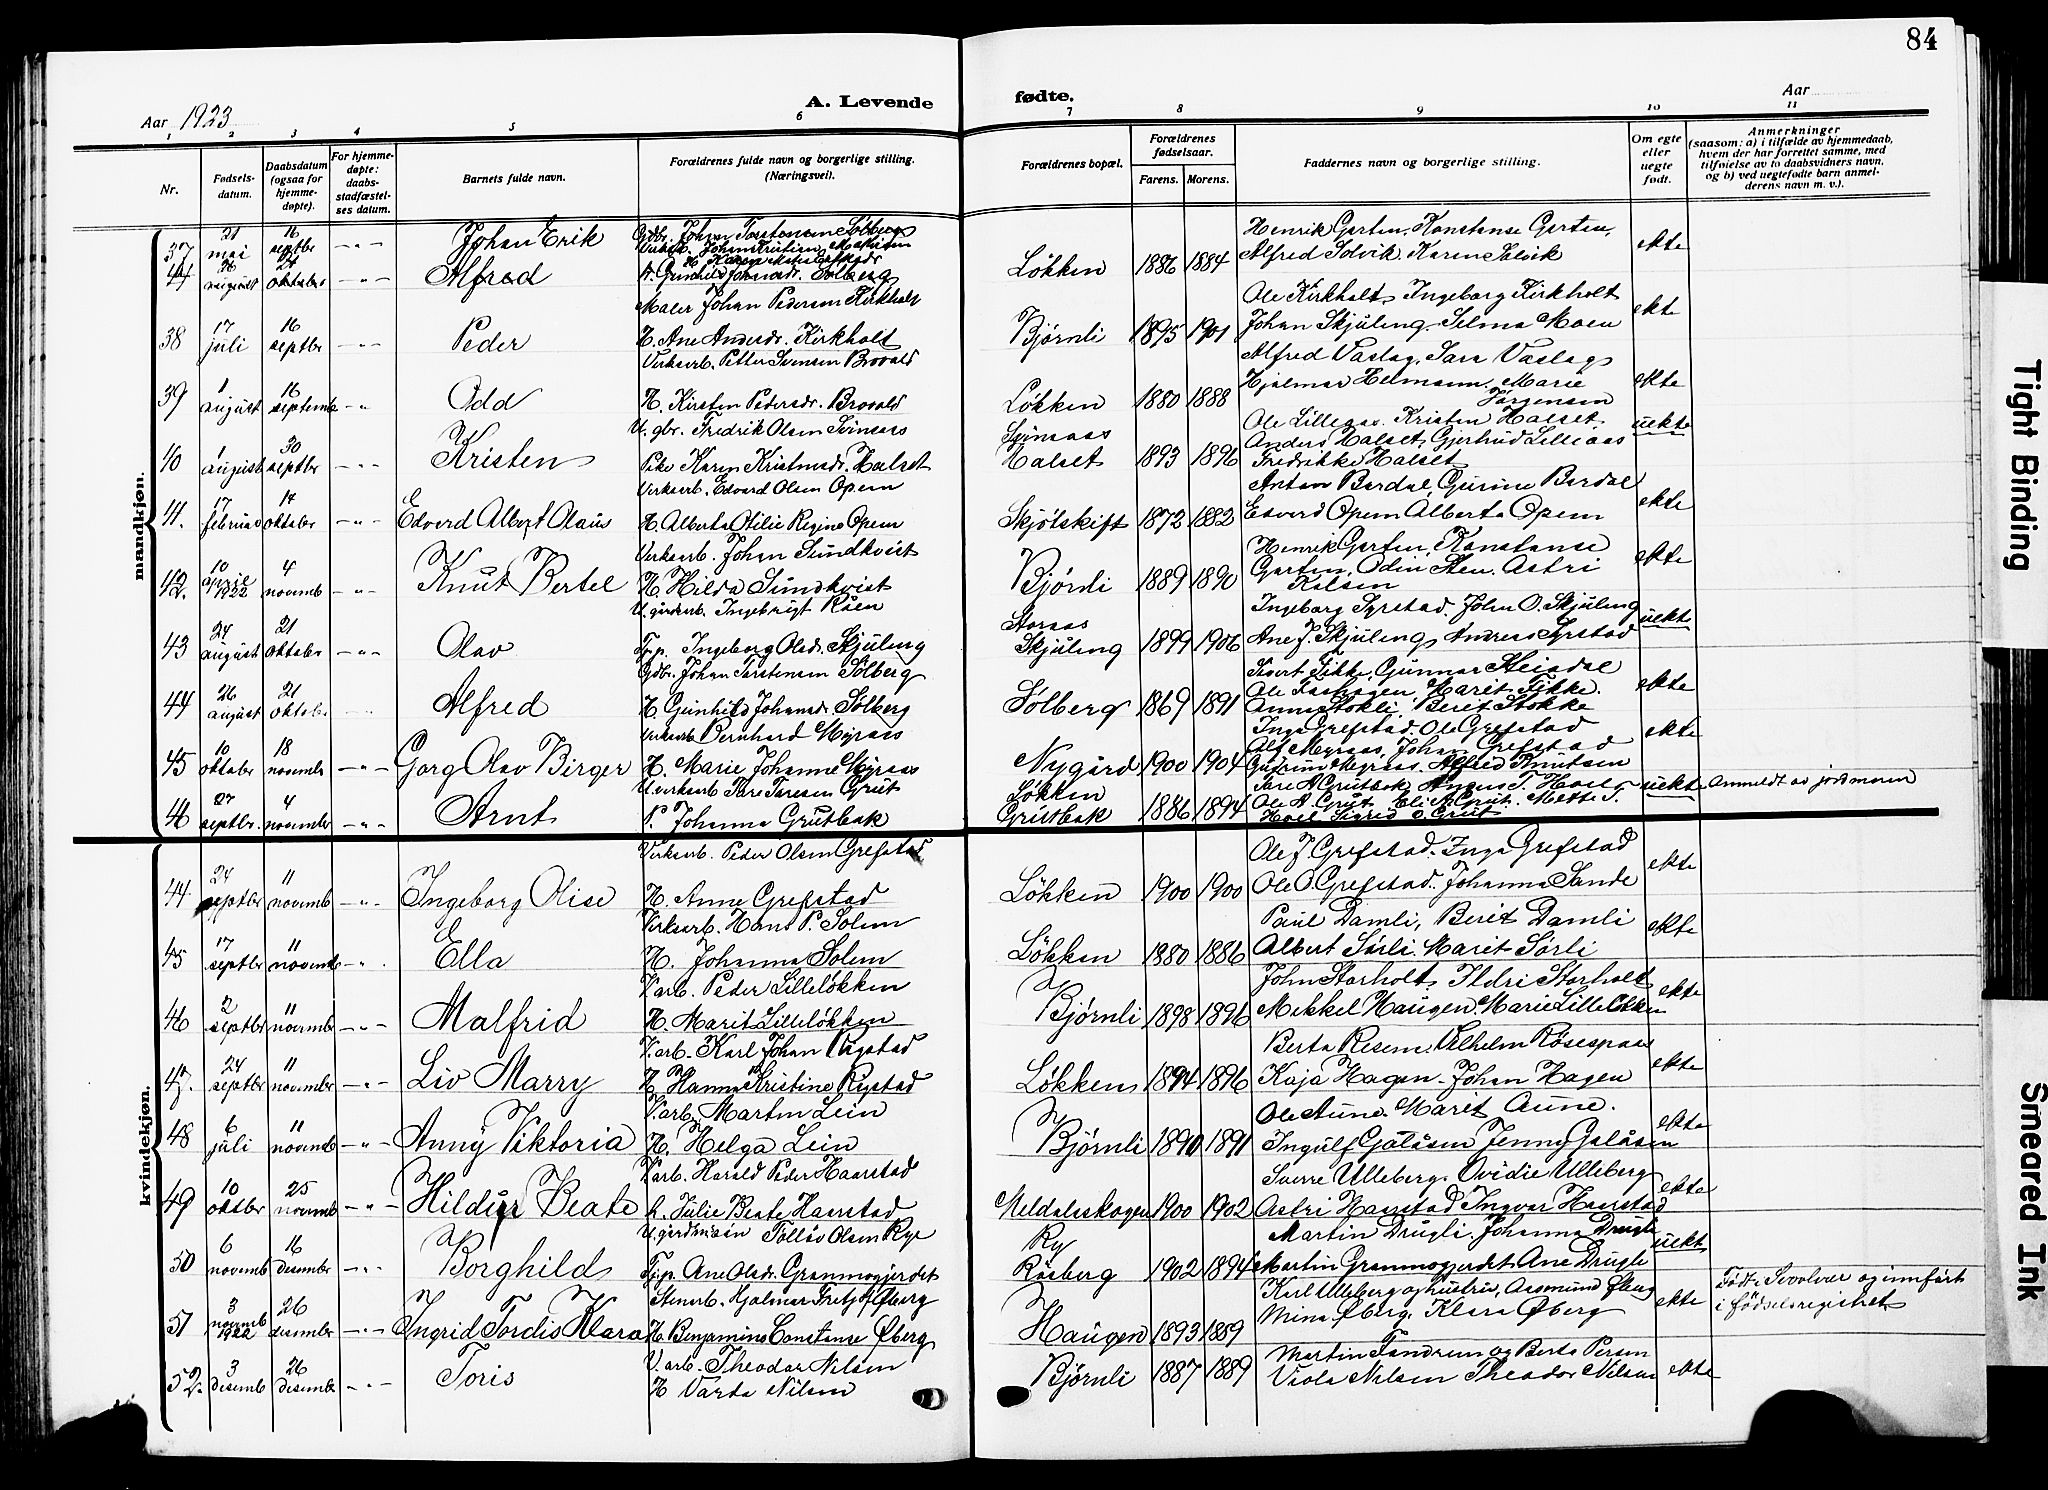 84
Aar 1923
A. Levende
fødte.
Aar
1 2 3 4 5 6 7 8 9 10 11
Nr.
Fødsels-
datum.
Daabsdatum
(ogsaa for
hjemme-
døpte).
For hjemme-
døpte:
daabs-
stadfæstel-
ses datum.
Barnets fulde navn.
Forældrenes fulde navn og borgerlige stilling.
(Næringsvei).
Forældrenes bopæl.
Forældrenes
fødselsaar.
Farens. Morens.
Faddernes navn og borgerlige stilling.
Om egte
eller
uegte
født.
Anmerkninger
(saasom: a) i tilfælde av hjemmedaab,
hvem der har forrettet samme, med
tilføielse av to daabsvidners navn,
og b) ved uegtefødte barn anmel-
derens navn m. v.).
mandkjøn.
37 21 mai 16 septbr -"- Johan Erik
Løkken 1886 1884 Henrik Garten, Konstanse Garten,
Alfred Solvik. Karen Solvik ekte
44 26 august 21 oktober -"- Alfred H. Gunhild Johansdr. Sølberg
38 17 juli 16 septbr -"- Peder Maler Johan Pedersen Kirkholt
H. Ane Andersdr. Kirkholt
Bjørnli 1895 1901 Ole Kirkholt, Ingeborg Kirkholt
Johan Skjuling, Selma Moen ekte
39 1 august 16 septemb -"- Odd Verksarb. Petter Svensen Brovold
H. Kirsten Pedersdr. Brovold
Løkken 1880 1888 Alfred Vaslag, Sara Vaslag,
Hjalmar Heimann. Marie
Jørgensen ekte
40 1 august 30 septbr -"- Kristen U. gbr. Fredrik Olsen Svinsaas
Pike Karen Kristensdr. Halset
Svinsaas
Halset 1893 1896 Ole Lilleaas. Kristen Halset
Anders Halset, Gjertrud Lilleaas
Fredrikke Halset uekte
41. 17 februar 14 oktober -"- Edverd Albert Olaus Verksarb. Edvard Olsen Opem
H. Alberta Otilie Regine Opem
Skjølskift 1872 1882 Anton Bardal, Gurine Bardal
Edverd Opem Alberta Opem ekte
42. 10 april 1922 4 novemb -"- Knut Bertel Verksarb. Johan Sundkvist
H. Hilda Sundkvist
Bjørnli 1889 1890 Henrik Garten, Konstanse
Garten, Odin Steen. Astri
Kalsen ekte
43 24 august 21 oktober -"- Olav U. gårdarb. Ingebrigt Råen
Tjp. Ingeborg Olsdr. Skjuling
Storaas
Skjuling 1899 1906 Ingeborg Syrstad. John O. Skjuling
Ane J. Skjuling, Andreas Syrstad uekte
44 26 august 21 oktober Alfred Gdbr. Johan Torstensen Sølberg
H. Gunhild Johansdr. Sølberg
Sølberg 1869 1891 Sivert Fikke, Gunnar Steindal
Ole Aashagen, Marit Fikke.
Anne Stokli, Berit Stokke ekte
45 10 oktober 18 novembr -"- Georg Olav Birger Verksarb Bernhard Myraas
H. Marie Johanne Myraas
Nygård 1900 1904 Inga Grefstad. Ole Grefstad
Alf Myraas, Johan Grefstad
Gudrun Myraas. Alfred Knutsen ekte
46 27 septbr. 4 november -"- Arnt U. verksarb Tore Toresen Grut
P. Johanna Grutbak
Løkken
Grutbak 1886 1894 Tore A Grutbak, Anders T. Hoel
Ole A. Grut, Eli A Grut. Mette T.
Hoel Sigrid O. Grut uekte Anmeldt av jordmoren
kvindekjøn.
44 24 septbr 11 novemb -"- Ingeborg Olise Verksarb. Peder Olsen Grefstad
H. Anne Grefstad
Løkken 1900 1900 Ole J. Grefstad. Inga Grefstad
Ole O. Grefstad. Johanna Sande ekte
45 17 septbr 11 novemb -"- Ella Verksarb. Hans P. Solem
H. Johanna Solem
Løkken 1880 1886 Paul Damli, Berit Damli
Albert Sørli. Marit Sørli ekte
46 2 septbr 11 novembr -"- Malfrid V.arb. Peder Lilleløkken
H. Marit Lilleløkken
Bjørnli 1898 1896 John Storholt, Ildri Storholt
Mikkel Haugen, Marie Lilleløkken ekte
47. 24 septbr 11 november -"- Liv Marry V.arb. Karl Johan Rystad
H. Hanna Kristine Rystad
Løkken 1894 1896 Berta Resem, Vilhelm Røsespaas
Kaja Hagen. Johan Hagen ekte
48 6 juli 11 novemb -"- Anny Viktoria V.arb. Martin Lein
H. Helga Lein
Bjørnli 1890 1891 Ole Aune. Marit Aune.
Ingulf Galåsen Jenny Galåsen ekte
49 10 oktbr 25 novemb -"- Hildur Beate V.arb. Harald Peder Haarstad
h. Julie Beate Haarstad
Meldalsskogen 1900 1902 Sverre Ulleberg. Ovidie Ulleberg
Astri Haarstad Ingvar Haarstad ekte
50 6 novemb 16 desember -"- Borghild U. gårdmann Tolløv Olsen Rye
Tjp. Ane Olsdr. Granmogjerdet
Ry
Råsberg 1902 1894 Martin Drugli. Johanna Drugli
Martin Granmogjerdet Ane Drugli uekt
51 3 novemb 1922 26 desember -"- Ingrid Tordis Klara Stenarb. Hjalmar Fretjof Øberg
H. Benjamine Constanse Øberg
Haugen 1893 1889 Karl Ulleberg og hustru, Aasmund Øberg
Mina Øberg, Klara Øberg ekte Født i Svolvær og innført
i fødselsregistret
52. 3 desemb 26 desemb -"- Toris V.arb. Theodor Nilsen
H Varta Nilsen
Bjørnli 1887 1889 Martin Tandrum og Berta Persen
Viola Nilsen Theodor Nilsen ekte
Tight Binding
Smeared Ink